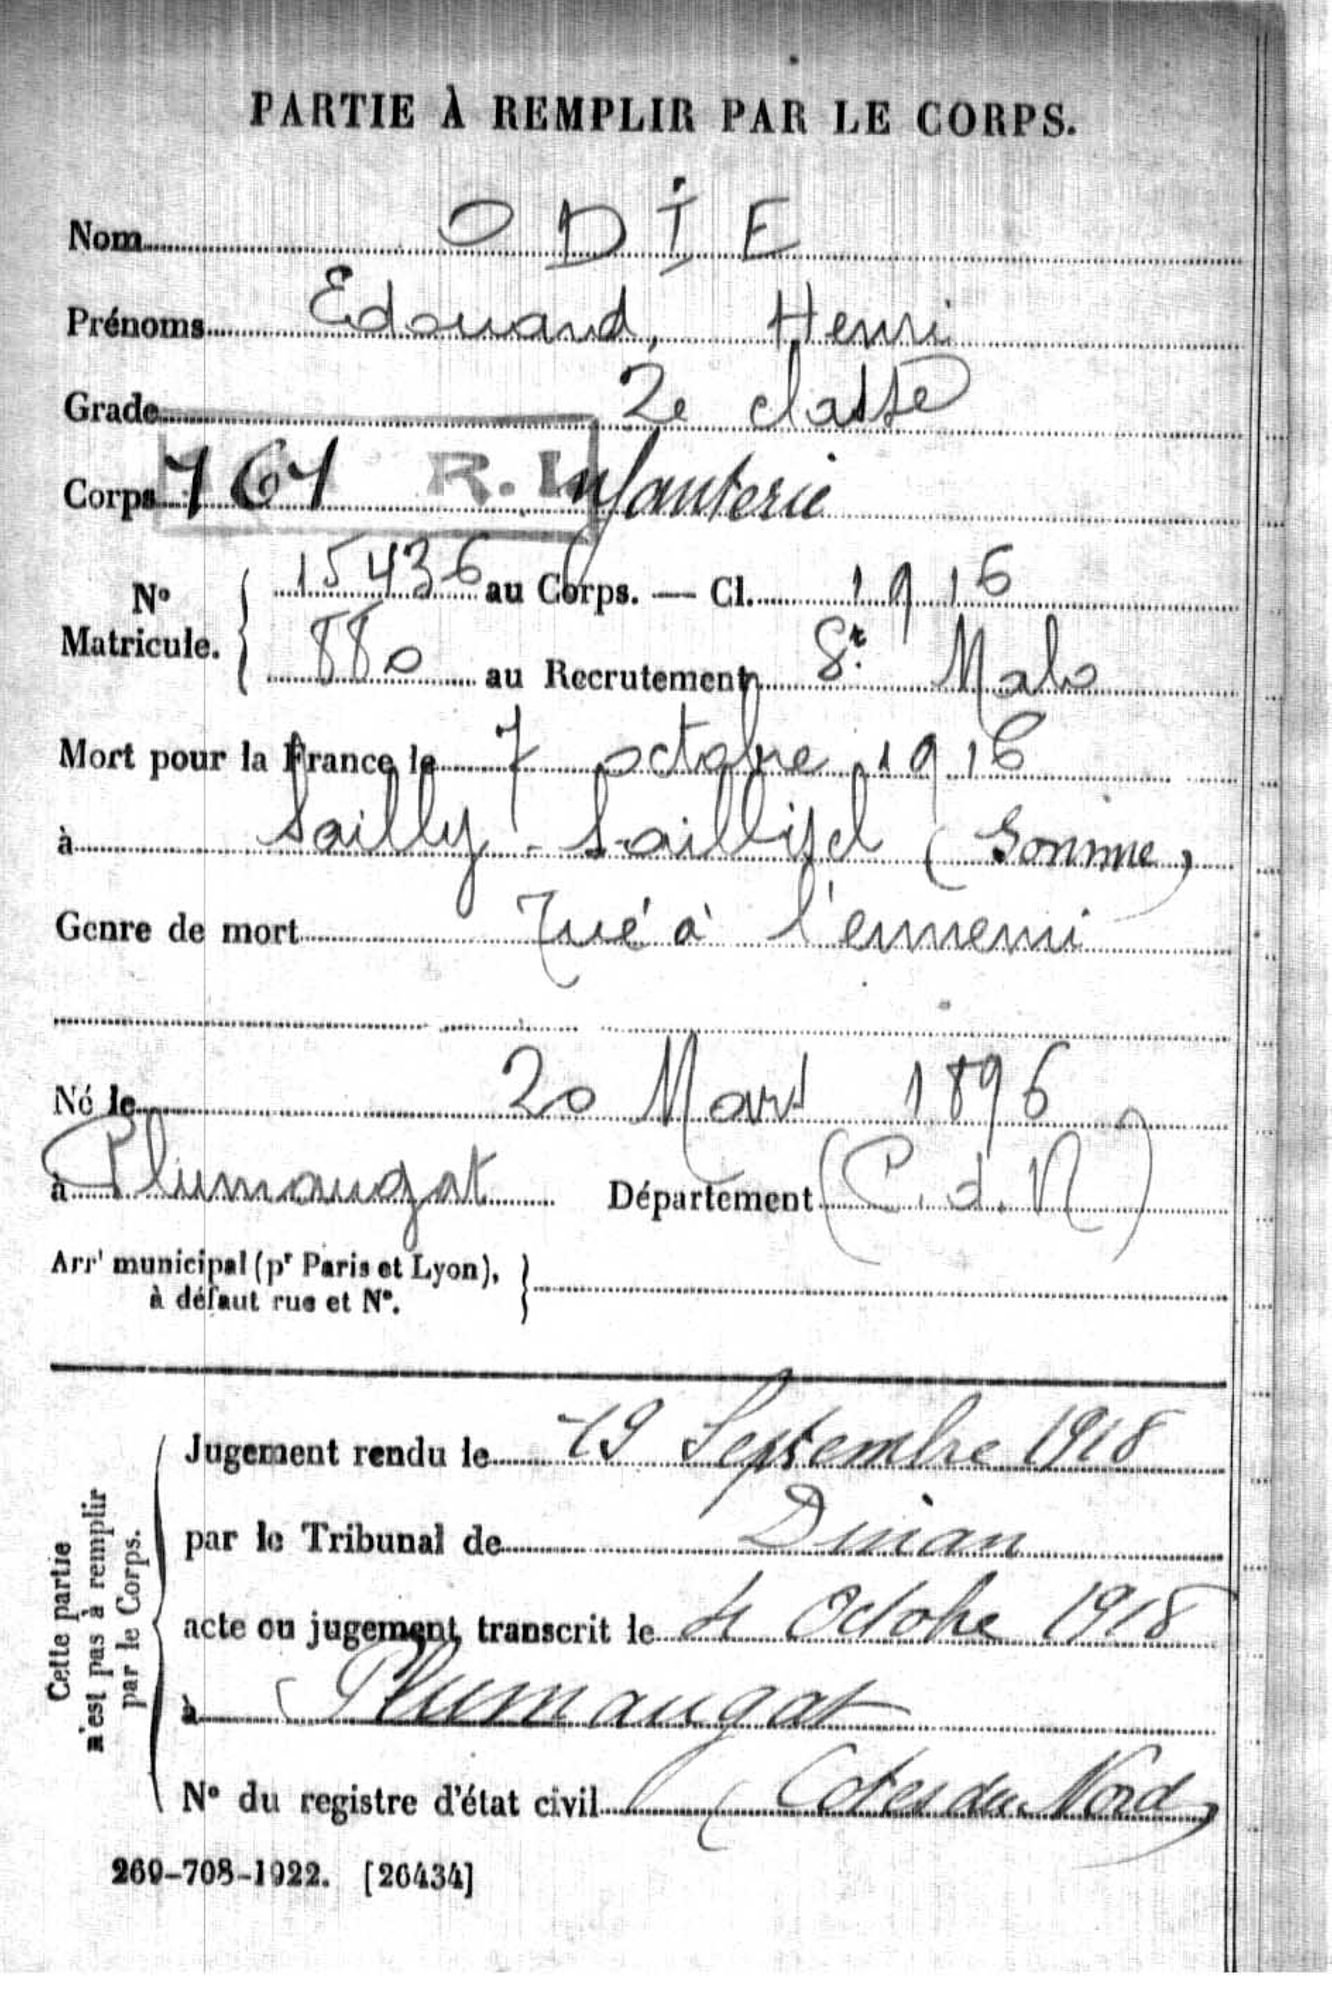 PARTIE À REMPLIR PAR LE CORPS.
Nom ODIE
Prénoms Edouard, Henri
Grade 2e classe
Corps 161 R.Infanterie
N° Matricule. { 15436 au Corps. — Cl. 1916
880 au Recrutement St. Malo
Mort pour la France le 7 octobre 1916
à Sailly-Saillisel (Somme)
Genre de mort Tué à l'ennemi
Né le 20 Mars 1896
à Plumaugat Département (C. d. N)
Arrt municipal (pr Paris et Lyon),
à défaut rue et N°. }
Cette partie
n'est pas à remplir
par le Corps.
Jugement rendu le 19 Septembre 1918
par le Tribunal de Dinan
acte ou jugement transcrit le 4 Octobre 1918
à Plumaugat
N° du registre d'état civil (Cotes du Nord)
269-708-1922. [26434]